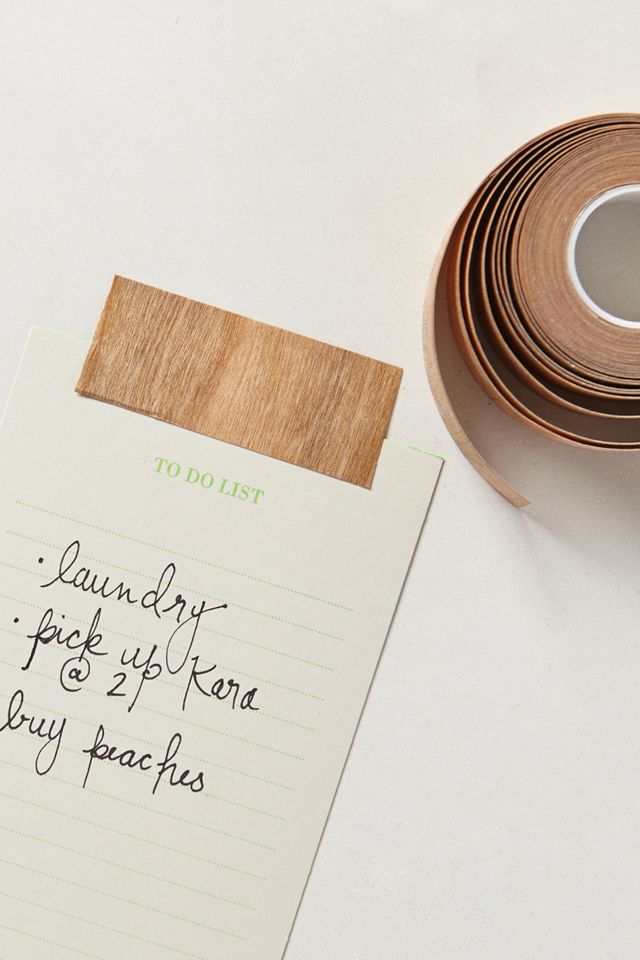 TO DO LIST
· laundry
· pick up Kara
@ 2p
buy peaches